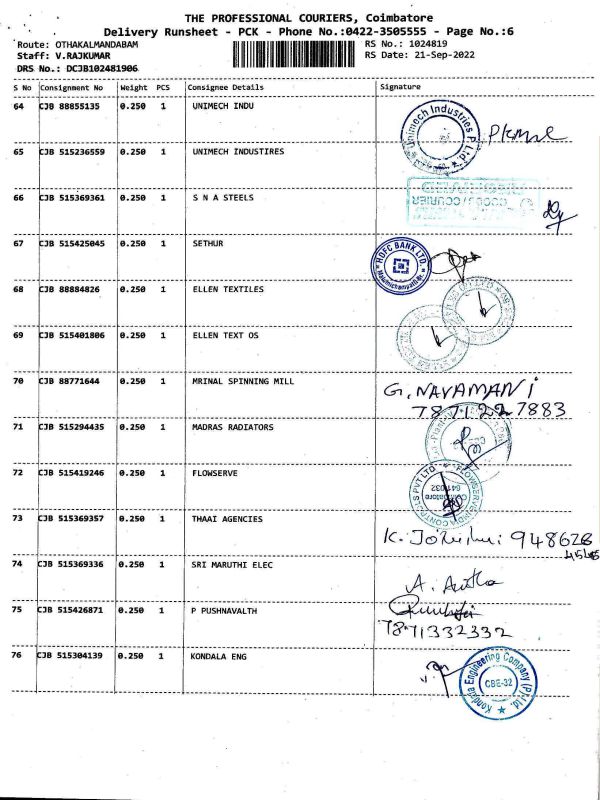 THE PROFESSIONAL COURIERS, Coimbatore
Delivery Runsheet - PCK - Phone No.:0422-3505555 - Page No.:6
Route: OTHAKALMANDABAM RS No.: 1024819
Staff: V.RAJKUMAR RS Date: 21-Sep-2022
DRS No.: DCJB102481906
S No Consignment No Weight PCS Consignee Details Signature
64 CJB 88855135 0.250 1 UNIMECH INDU
Unimech Industries P Ltd.
65 CJB 515236559 0.250 1 UNIMECH INDUSTIRES
66 CJB 515369361 0.250 1 S N A STEELS
GOODS / COURIER
67 CJB 515425045 0.250 1 SETHUR
HDFC BANK LTD.
68 CJB 88884826 0.250 1 ELLEN TEXTILES
69 CJB 515401806 0.250 1 ELLEN TEXT OS
70 CJB 88771644 0.250 1 MRINAL SPINNING MILL G. NAVAMANI
787122 7883
71 CJB 515294435 0.250 1 MADRAS RADIATORS
72 CJB 515419246 0.250 1 FLOWSERVE
FLOWSERVE INDIA CONTROLS PVT LTD
Coimbatore
641 032
73 CJB 515369357 0.250 1 THAAI AGENCIES
948628
4545
74 CJB 515369336 0.250 1 SRI MARUTHI ELEC
75 CJB 515426871 0.250 1 P PUSHNAVALTH
7871332332
76 CJB 515304139 0.250 1 KONDALA ENG
Kondala Engineering Company (P) Ltd.
CBE-32